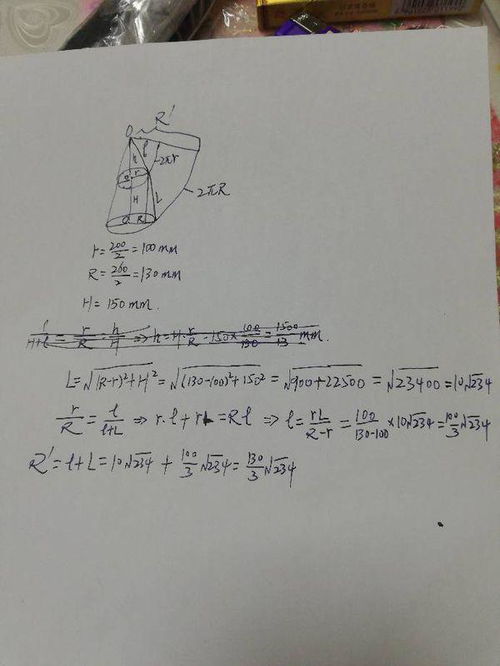 R'
O
l
h
2πr
r
H
L
2πR
R
r = 200/2 = 100 mm
R = 260/2 = 130 mm
H = 150 mm.
l/(H+l) = r/R = h/H ⇒ h = H·r/R = 150×100/130 = 1500/13 mm.
L = √((R-r)²+H²) = √((130-100)²+150²) = √(900+22500) = √23400 = 10√234
r/R = l/(l+L) ⇒ r·l+rL = Rl ⇒ l = rL/(R-r) = 100/(130-100) ×10√234 = 100/3 √234
R' = l+L = 10√234 + 100/3 √234 = 130/3 √234